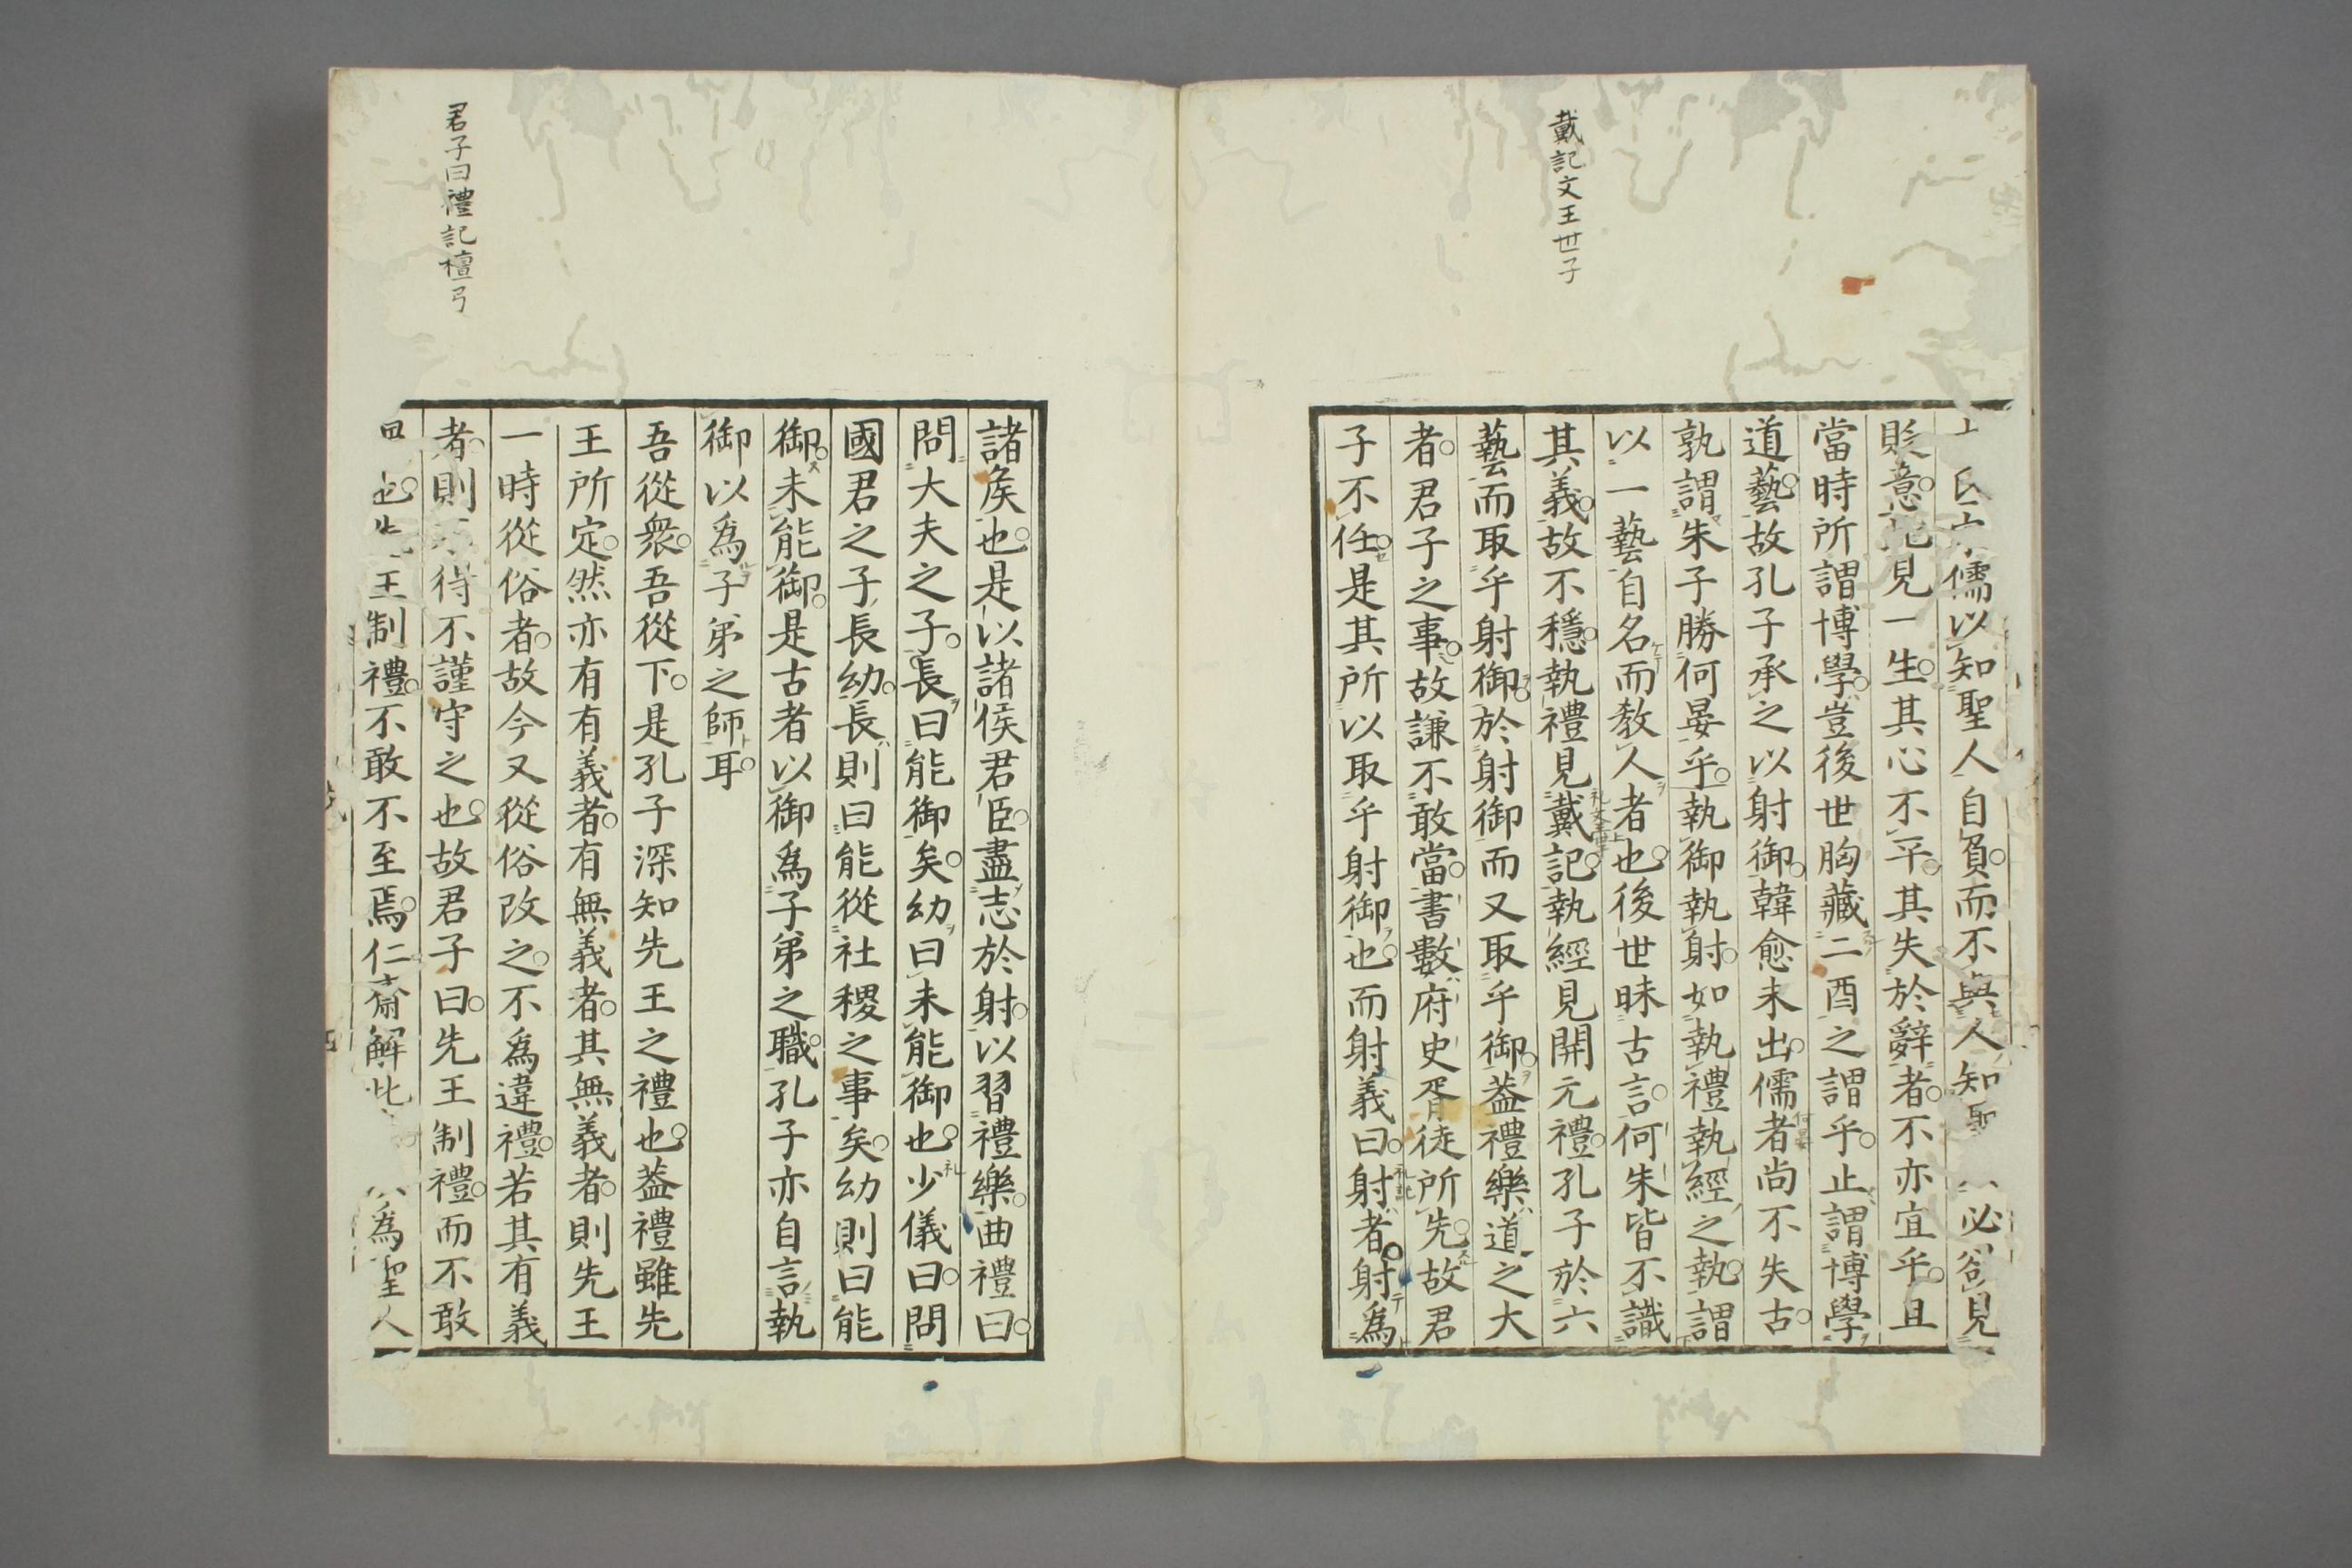 戴記文王世子
儒以知聖人自負而不與人知聖必卻見
貶意此見一生其心不平其失於辭者不亦宜乎且
當時所謂博學豈後世胸藏二酉之謂乎止謂博學
道藝故孔子承之以射御韓愈未出儒者尚不失古
孰謂朱子勝何晏乎執御執射如執禮執經之執謂
以一藝自名而教人者也後世昧古言何朱皆不識
其義故不穩執禮見戴記執經見開元禮孔子於六
藝而取乎射御於射御而又取乎御葢禮樂道之大
者君子之事故謙不敢當書數府史胥徒所先故君
子不任是其所以取乎射御也而射義曰射者射爲
君子曰禮記檀弓
諸矦也是以諸侯君臣盡志於射以習禮樂曲禮曰
問大夫之子長曰能御矣幼曰未能御也少儀曰問
國君之子長幼長則曰能從社稷之事矣幼則曰能
御未能御是古者以御爲子弟之職孔子亦自言執
御以爲子弟之師耳
吾從衆吾從下是孔子深知先王之禮也葢禮雖先
王所定然亦有有義者有無義者其無義者則先王
一時從俗者故今又從俗改之不爲違禮若其有義
者則不得不謹守之也故君子曰先王制禮而不敢
也先王制禮不敢不至焉仁齋解此爲聖人